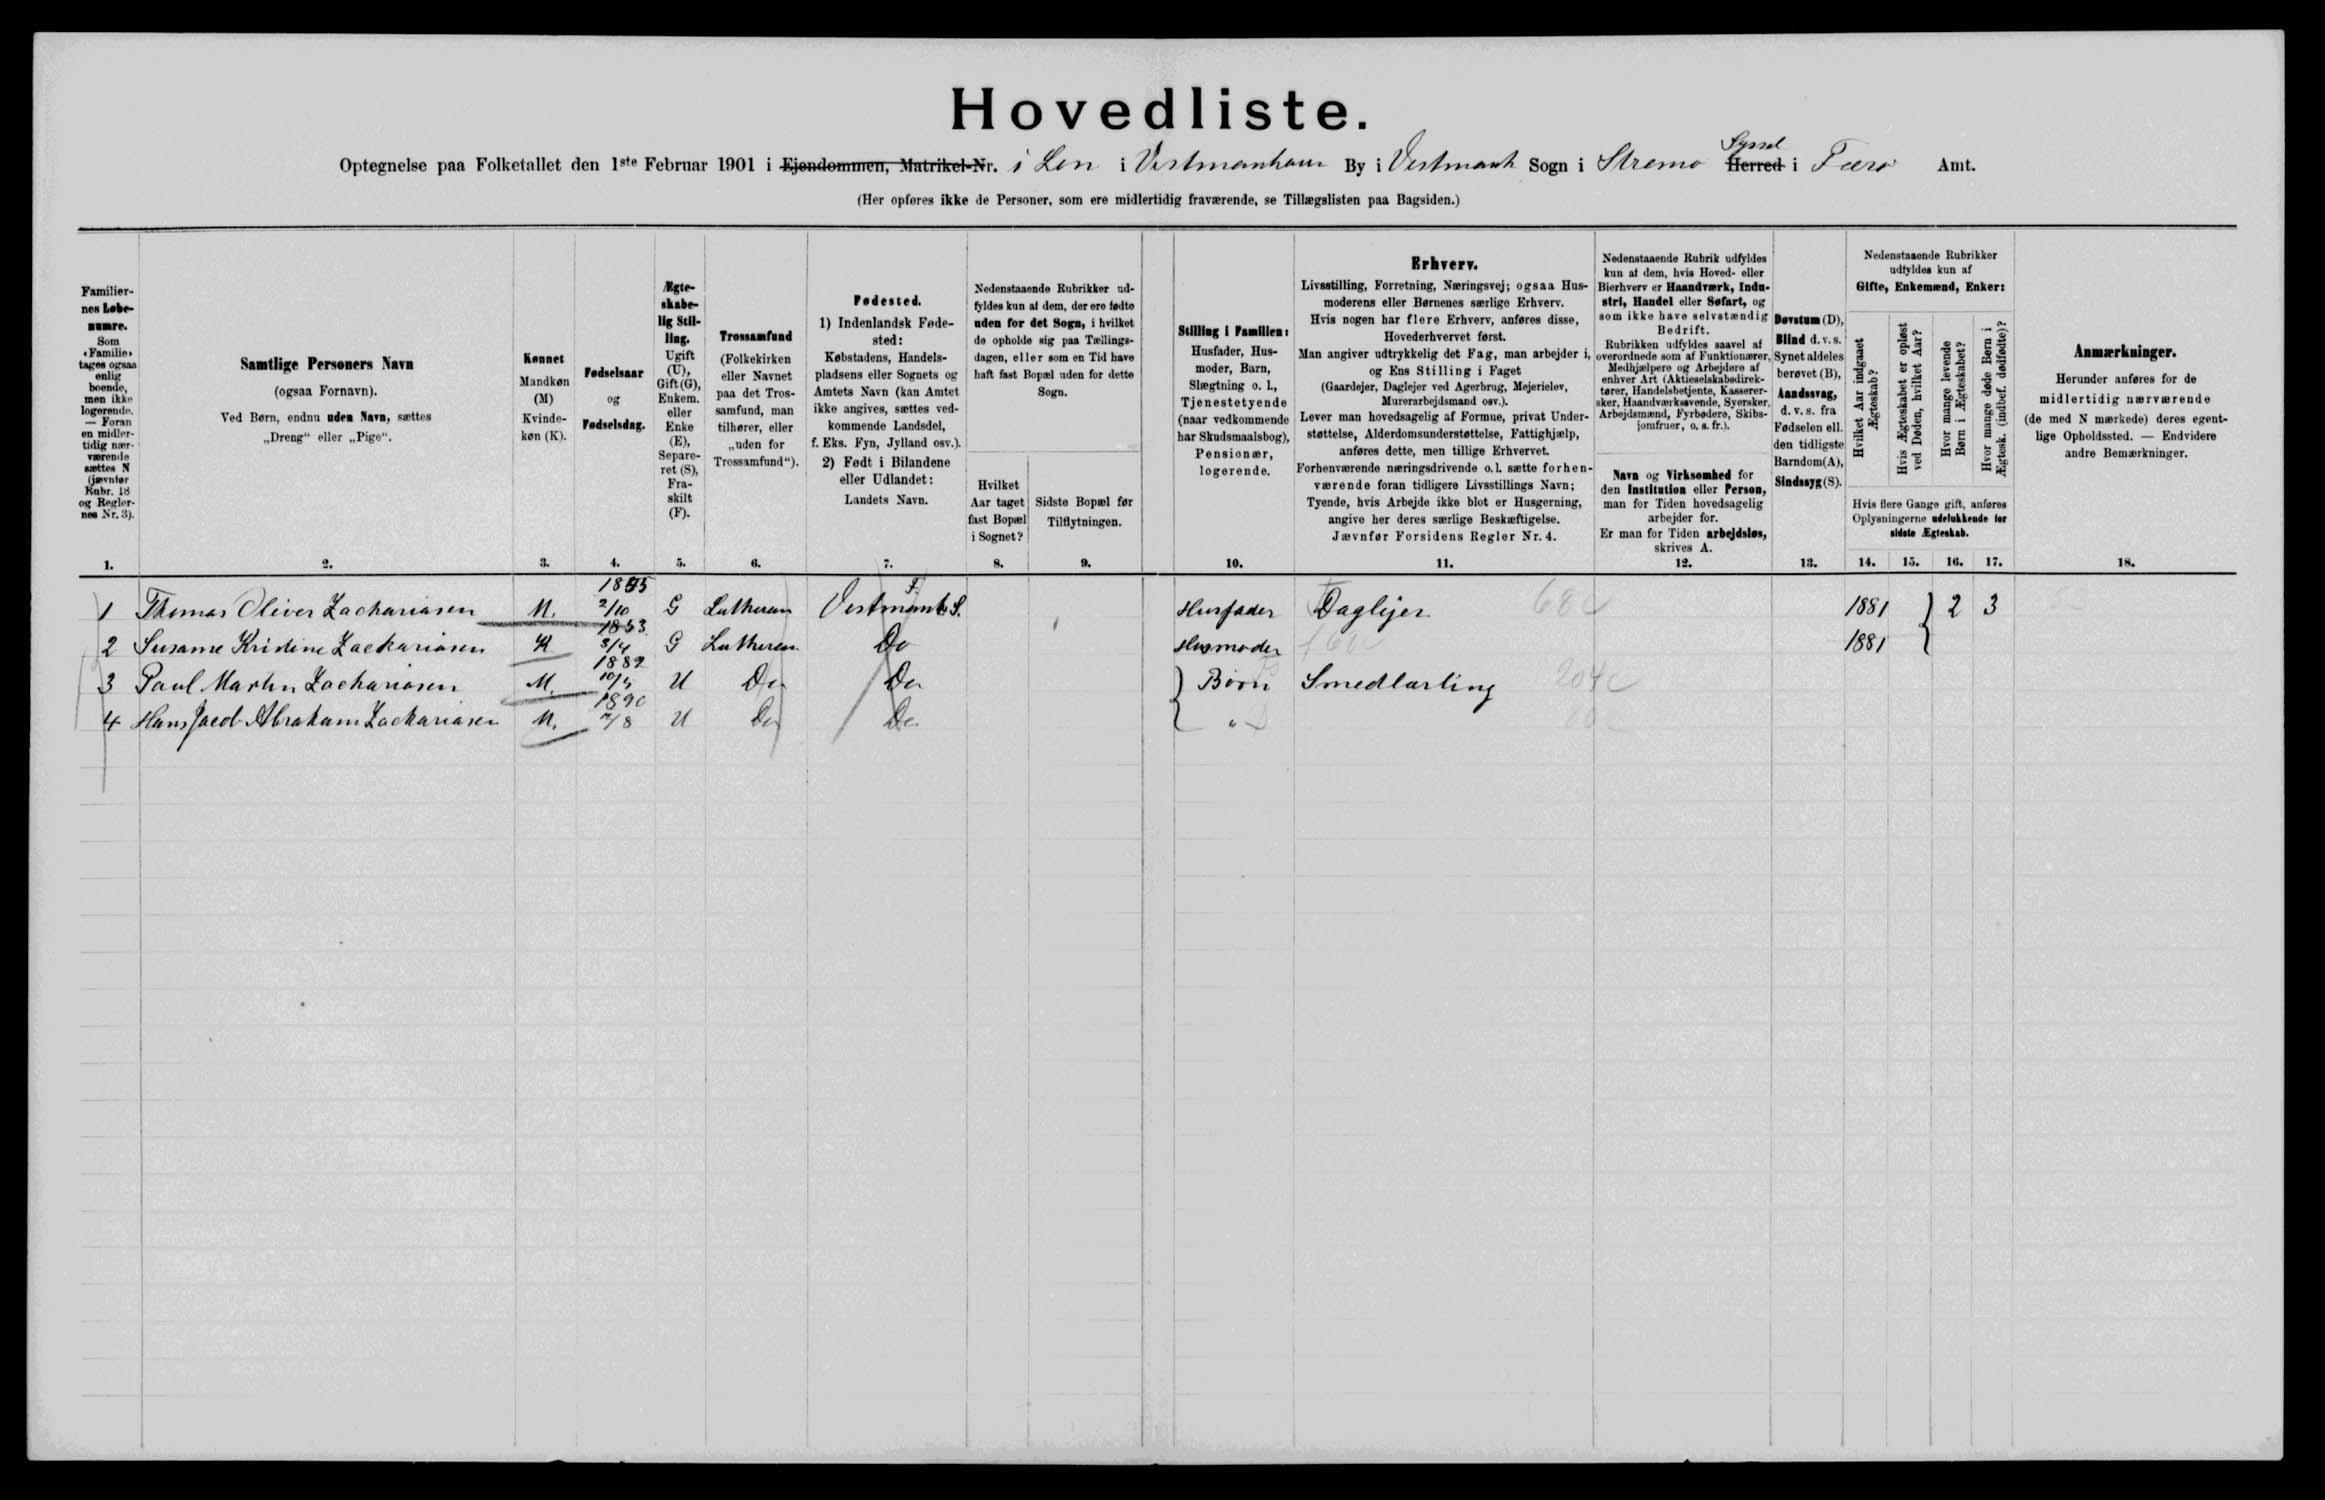 Hovedliste.
Syssel
Optegnelse paa Folketallet den 1ste Februar 1901 i Ejendommen, Matrikel-Nr. i Len i Vestmanhavn By i Vestmanh Sogn i Stremo Herred i Færø Amt.
(Her opføres ikke de Personer, som ere midlertidig fraværende, se Tillægslisten paa Bagsiden.)
Familier-
nes Løbe-
numre.
Som
«Familie»
tages ogsaa
enlig
boende,
men ikke
logerende.
— Foran
en midler-
tidig nær-
værende
sættes N
(jævnfør
Rubr. 18
og Regler-
nes Nr. 3).
1.
Samtlige Personers Navn
(ogsaa Fornavn).
Ved Børn, endnu uden Navn, sættes
„Dreng“ eller „Pige“.
2.
Kønnet
Mandkøn
(M)
Kvinde-
køn (K).
3.
Fødselsaar
og
Fødselsdag.
4.
Ægte-
skabe-
lig Stil-
ling.
Ugift
(U),
Gift (G),
Enkem.
eller
Enke
(E),
Separe-
ret (S),
Fra-
skilt
(F).
5.
Trossamfund
(Folkekirken
eller Navnet
paa det Tros-
samfund, man
tilhører, eller
„uden for
Trossamfund“).
6.
Fødested.
1) Indenlandsk Føde-
sted:
Købstadens, Handels-
pladsens eller Sognets og
Amtets Navn (kan Amtet
ikke angives, sættes ved-
kommende Landsdel,
f. Eks. Fyn, Jylland osv.).
2) Født i Bilandene
eller Udlandet:
Landets Navn.
7.
Nedenstaaende Rubrikker ud-
fyldes kun af dem, der ere fødte
uden for det Sogn, i hvilket
de opholde sig paa Tællings-
dagen, eller som en Tid have
haft fast Bopæl uden for dette
Sogn.
Hvilket
Aar taget
fast Bopæl
i Sognet?
8.
Sidste Bopæl før
Tilflytningen.
9.
Stilling i Familien:
Husfader, Hus-
moder, Barn,
Slægtning o. l.,
Tjenestetyende
(naar vedkommende
har Skudsmaalsbog),
Pensionær,
logerende.
10.
Erhverv.
Livsstilling, Forretning, Næringsvej; ogsaa Hus-
moderens eller Børnenes særlige Erhverv.
Hvis nogen har flere Erhverv, anføres disse,
Hovederhvervet først.
Man angiver udtrykkelig det Fag, man arbejder i,
og Ens Stilling i Faget
(Gaardejer, Daglejer ved Agerbrug, Mejerielev,
Murerarbejdsmand osv.).
Lever man hovedsagelig af Formue, privat Under-
støttelse, Alderdomsunderstøttelse, Fattighjælp,
anføres dette, men tillige Erhvervet.
Forhenværende næringsdrivende o.l. sætte forhen-
værende foran tidligere Livsstillings Navn;
Tyende, hvis Arbejde ikke blot er Husgerning,
angive her deres særlige Beskæftigelse.
Jævnfør Forsidens Regler Nr. 4.
11.
Nedenstaaende Rubrik udfyldes
kun af dem, hvis Hoved- eller
Bierhverv er Haandværk, Indu-
stri, Handel eller Søfart, og
som ikke have selvstændig
Bedrift.
Rubrikken udfyldes saavel af
overordnede som af Funktionærer,
Medhjælpere og Arbejdere af
enhver Art (Aktieselskabsdirek-
tører, Handelsbetjente, Kasserer-
sker, Haandværkssvende, Syersker,
Arbejdsmænd, Fyrbødere, Skibs-
jomfruer, o. s. fr.).
Navn og Virksomhed for
den Institution eller Person,
man for Tiden hovedsagelig
arbejder for.
Er man for Tiden arbejdsløs,
skrives A.
12.
Døvstum (D),
Blind d. v. s.
Synet aldeles
berøvet (B),
Aandssvag,
d. v. s. fra
Fødselen ell.
den tidligste
Barndom (A),
Sindssyg (S).
13.
Nedenstaaende Rubrikker
udfyldes kun af
Gifte, Enkemænd, Enker:
Hvilket Aar indgaaet
Ægteskab?
Hvis Ægteskabet er opløst
ved Døden, hvilket Aar?
Hvor mange levende
Børn i Ægteskabet?
Hvor mange døde Børn i
Ægtesk. (indbef. dødfødte)?
Hvis flere Gange gift, anføres
Oplysningerne udelukkende for
sidste Ægteskab.
14. 15. 16. 17.
Anmærkninger.
Herunder anføres for de
midlertidig nærværende
(de med N mærkede) deres egent-
lige Opholdssted. — Endvidere
andre Bemærkninger.
18.
1855
1 Thomas Oliver Zachariasen M. 2/10 G Lutheran Vestmanh S. Husfader Daglejer 68 C 1881 2 3
1853
2 Susanne Kristine Zachariasen K 3/4 G Lutheran Do Husmoder 1881
1882
3 Paul Martin Zachariasen M. 10/5 U Do Do Børn Smedlærling 204 C
1890
4 Hans Jacob Abraham Zachariasen M. 7/8 U Do Do "